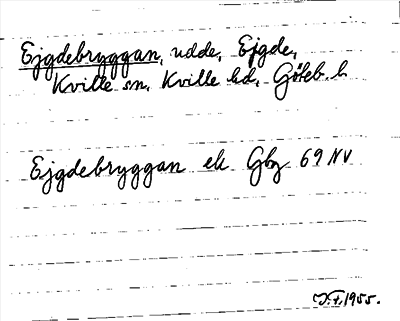 Ejgdebryggan, udde, Ejgde,
Kville sn, Kville hd, Göteb. l.
Ejgdebryggan ek Gbg 69 NV
1955.